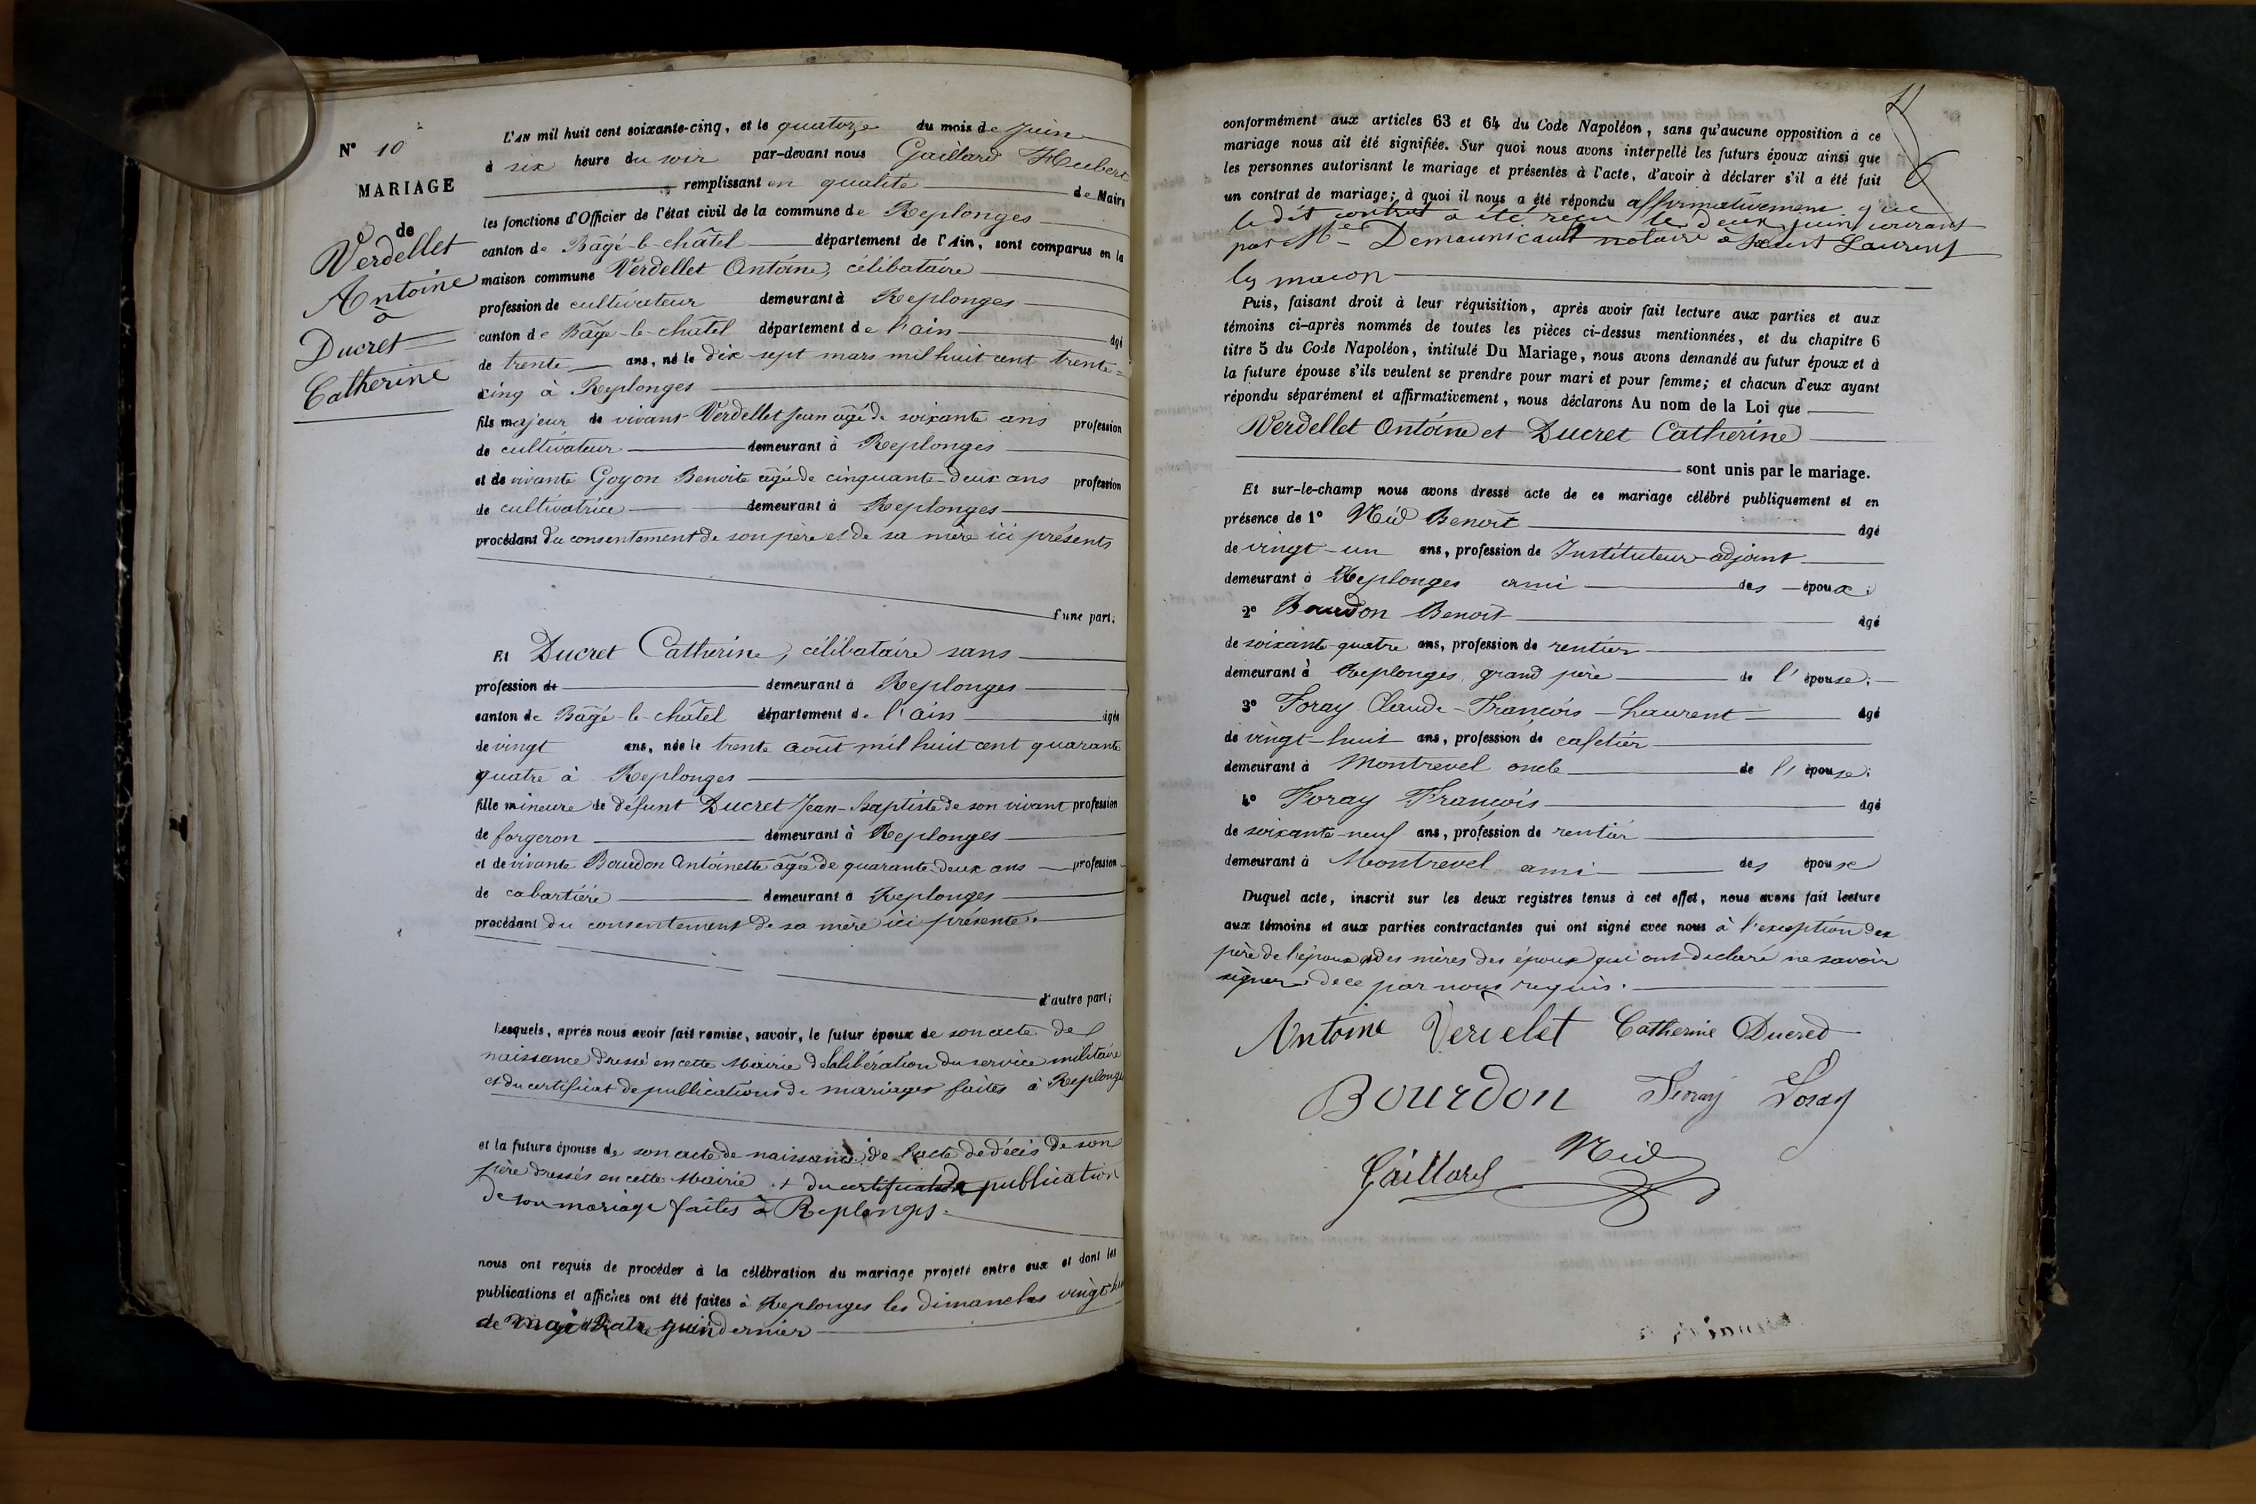 N° 10
MARIAGE
de
Verdellet
Antoine
à
Ducret
Catherine
L'AN mil huit cent soixante-cinq, et le quatorze du mois de Juin
à six heure du soir par-devant nous Gaillard Hubert
remplissant en qualité de Maire
les fonctions d'Officier de l'état civil de la commune de Replonges
canton de Bâgé-le-châtel département de l'Ain, sont comparus en la
maison commune Verdellet Antoine, célibataire
profession de cultivateur demeurant à Replonges
canton de Bâgé-le-châtel département de l'ain âgé
de trente ans, né le dix-sept mars mil huit cent trente-
cinq à Replonges
fils majeur de vivant Verdellet Jean âgé de soixante ans profession
de cultivateur demeurant à Replonges
et de vivante Goyon Benoite âgée de cinquante-deux ans profession
de cultivatrice demeurant à Replonges
procédant du consentement de son père et de sa mère ici présents
d'une part;
Et Ducret Catherine, célibataire sans
profession de demeurant à Replonges
canton de Bâgé-le-châtel département de l'ain âgée
de vingt ans, née le trente août mil huit cent quarante
quatre à Replonges
fille mineure de défunt Ducret Jean-Baptiste de son vivant profession
de forgeron demeurant à Replonges
et de vivante Bourdon Antoinette âgée de quarante-deux ans profession
de cabartière demeurant à Replonges
procédant du consentement de sa mère ici présente.
d'autre part;
Lesquels, après nous avoir fait remise, savoir, le futur époux de son acte de
naissance dressé en cette Mairie de la libération du service militaire
et du certificat de publications de mariages faites à Replonges
et la future épouse de son acte de naissance, de l'acte de décès de son
père dressés en cette Mairie et du certificat de publication
de son mariage faites à Replonges.
nous ont requis de procéder à la célébration du mariage projeté entre eux et dont les
publications et affiches ont été faites à Replonges les dimanches vingt-huit
de mai quatre juin dernier
conformément aux articles 63 et 64 du Code Napoléon, sans qu'aucune opposition à ce
mariage nous ait été signifiée. Sur quoi nous avons interpellé les futurs époux ainsi que
les personnes autorisant le mariage et présentes à l'acte, d'avoir à déclarer s'il a été fait
un contrat de mariage; à quoi il nous a été répondu affirmativement que
le dit contrat a été reçu le deux juin courant
par Me Demaunicault notaire à Saint Laurent
les macon
Puis, faisant droit à leur réquisition, après avoir fait lecture aux parties et aux
témoins ci-après nommés de toutes les pièces ci-dessus mentionnées, et du chapitre 6
titre 5 du Code Napoléon, intitulé Du Mariage, nous avons demandé au futur époux et à
la future épouse s'ils veulent se prendre pour mari et pour femme; et chacun d'eux ayant
répondu séparément et affirmativement, nous déclarons Au nom de la Loi que
Verdellet Antoine et Ducret Catherine
sont unis par le mariage.
Et sur-le-champ nous avons dressé acte de ce mariage célébré publiquement et en
présence de 1° Niel Benoît âgé
de vingt-un ans, profession de Instituteur-adjoint
demeurant à Replonges ami des époux;
2° Bourdon Benoît âgé
de soixante-quatre ans, profession de rentier
demeurant à Replonges grand père de l'épouse;
3° Foray Claude-François-Laurent âgé
de vingt-huit ans, profession de cafetier
demeurant à Montrevel oncle de l'épouse;
4° Foray François âgé
de soixante-neuf ans, profession de rentier
demeurant à Montrevel ami des époux
Duquel acte, inscrit sur les deux registres tenus à cet effet, nous avons fait lecture
aux témoins et aux parties contractantes qui ont signé avec nous à l'exception des
père de l'époux et des mères des époux qui ont déclaré ne savoir
signer de ce par nous requis.
Antoine Verdelet Catherine Ducred
Bourdon Foray Foray
Gaillard Niel